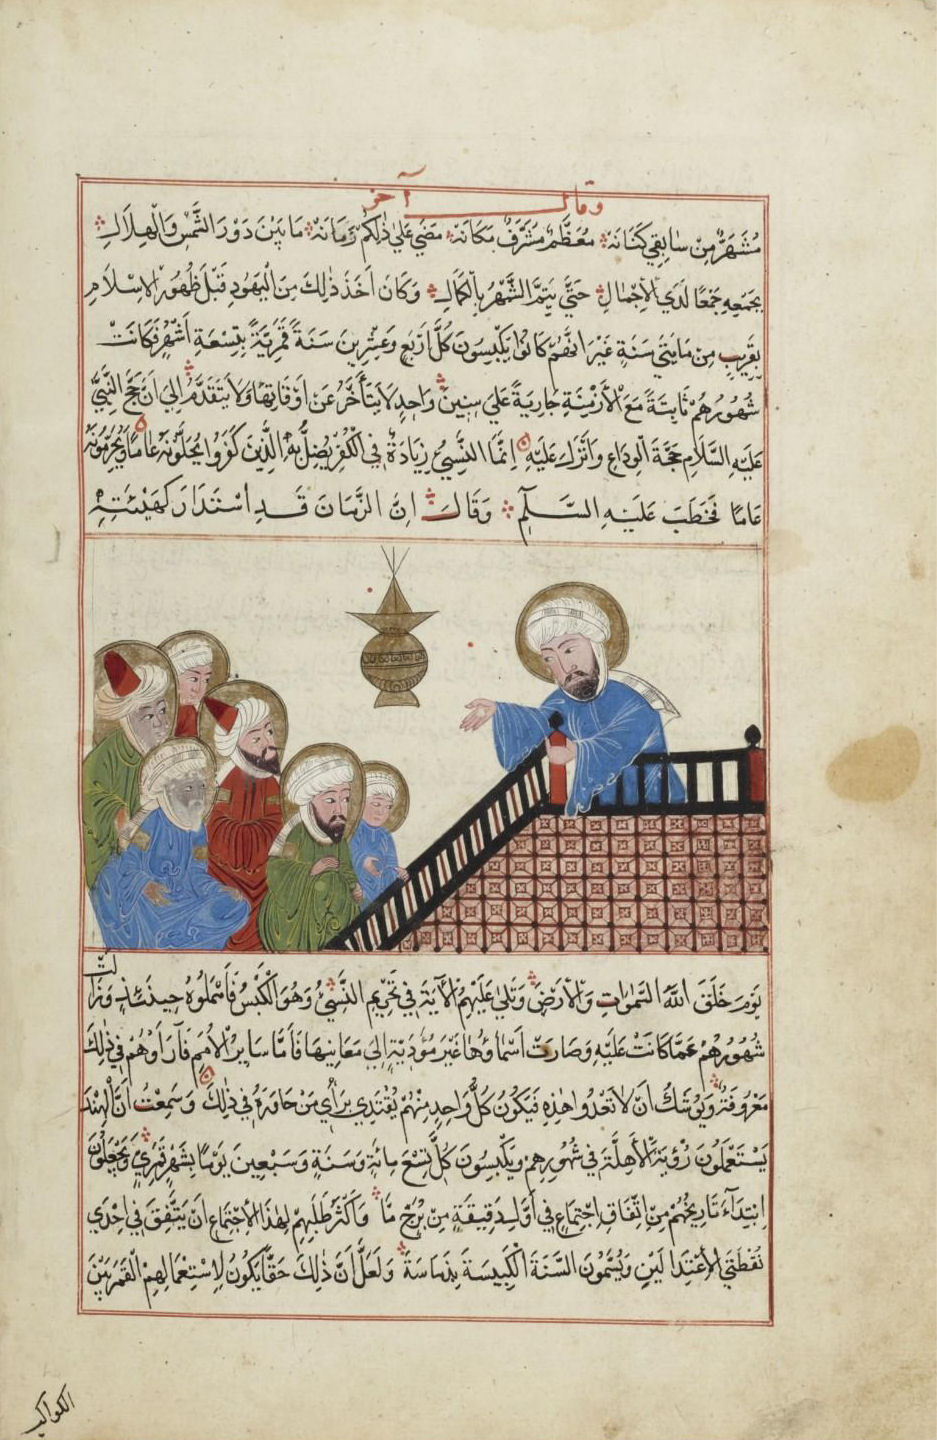 وقال آخر
مُشَهَّرٌ مِنْ سَابِقِي كَنَانَهْ مُعَظَّمٌ مُشَرَّفٌ مَكَانَهْ مَضَى عَلَى ذٰلِكُمْ زَمَانَهْ مَا بَيْنَ دَوْرِ الشَّمْسِ وَالْهِلَالِ
يَجْمَعُهُ جَمْعًا لَدَى الْإِجْمَالِ حَتَّى يَتِمَّ الشَّهْرُ بِالْكَمَالِ وَكَانَ أَخَذَ ذٰلِكَ مِنَ الْيَهُودِ قَبْلَ ظُهُورِ الْإِسْلَامِ
بِقَرِيبٍ مِنْ مَايَتَيْ سَنَةٍ غَيْرَ انَّهُمْ كَانُوا يَكْبِسُونَ كُلَّ أَرْبَعٍ وَعِشْرِينَ سَنَةً قَمَرِيَّةً بِتِسْعَةِ أَشْهُرٍ فَكَانَتْ
شُهُورُهُمْ ثَابِتَةً مَعَ الْأَزْمِنَةِ جَارِيَةً عَلَى سَنَنٍ وَاحِدٍ لَا يَتَأَخَّرُ عَنْ أَوْقَاتِهَا وَلَا يَتَقَدَّمُ إِلَى اَنْ حَجَّ النَّبِيُّ
عَلَيْهِ السَّلَامُ حَجَّةَ الْوِدَاعِ وَانْزَلَ عَلَيْهِ اِنَّمَا النَّسِيءُ زِيَادَةٌ فِي الْكُفْرِ يُضَلُّ بِهِ الَّذِينَ كَفَرُوا يُحِلُّونَهُ عَامًا وَيُحَرِّمُونَهُ
عَامًا فَخَطَبَ عَلَيْهِ السَّلَمُ وَقَالَ اِنَّ الزَّمَانَ قَدِ اُسْتَدَارَ كَهَيْئَتِهِ
يَوْمَ خَلَقَ اللّٰهُ السَّمٰوَاتِ وَالْأَرْضَ وَتَلَى عَلَيْهِمُ الْآيَةَ فِي تَحْرِيمِ النَّسِيءِ وَهُوَ الْكَبْسُ فَأَهْمَلُوهُ حِينَئِذٍ وَزَالَتْ
شُهُورُهُمْ عَمَّا كَانَتْ عَلَيْهِ وَصَارَتْ اَسْمَاؤُهَا غَيْرَ مُؤَدِّيَةٍ إِلَى مَعَانِيهَا فَأَمَّا سَايِرُ الْأُمَمِ فَآرَاؤُهُمْ فِي ذٰلِكَ
مَعْرُوفَةٌ وَيُوشَكُ اَنْ لَا تَعْدُوا هٰذِهِ فَيَكُونَ كُلُّ وَاحِدٍ مِنْهُمْ يَقْتَدِي بِرَأْيِ مَنْ جَاوَرَهُ فِي ذٰلِكَ وَسَمِعْتُ اَنَّ الْهِنْدَ
يَسْتَعْمِلُونَ رُؤْيَةَ الْأَهِلَّةِ فِي شُهُورِهِمْ وَيَكْبِسُونَ كُلَّ تِسْعَ مِائَةٍ وَسَنَةٍ وَسَبْعِينَ يَوْمًا بِشَهْرٍ قَمَرِيٍّ وَيَجْعَلُونَ
ابْتِدَاءَ تَارِيخِهِمْ مِنِ اتِّفَاقِ اجْتِمَاعٍ فِي أَوَّلِ دَقِيقَةٍ مِنْ بُرْجٍ مَّا وَاَكْثَرُ طَلَبِهِمْ لِهٰذَا الْإِجْتِمَاعِ اَنْ يَتَّفِقَ فِي اِحْدَى
نُقْطَتَيِ الْأِعْتِدَالَيْنِ وَيُسَمُّونَ السَّنَةَ الْكَبِيسَةَ بِذِمَاسَةَ وَلَعَلَّ اَنَّ ذٰلِكَ حَقًّا يَكُونُ لِاسْتِعْمَالِهِمُ الْقَمَرَ بَيْنَ
الكواكب